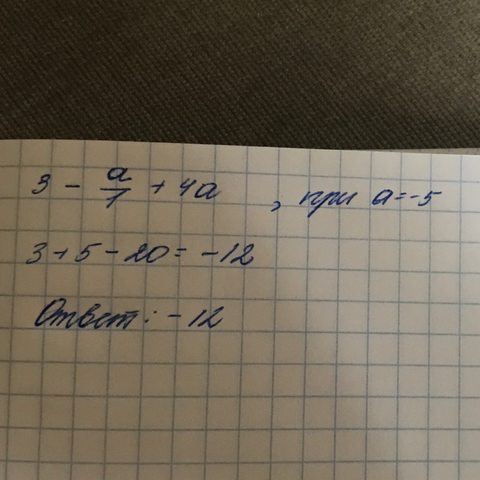 3 - a/1 + 4a , при a=-5
3+5-20=-12
Ответ: -12